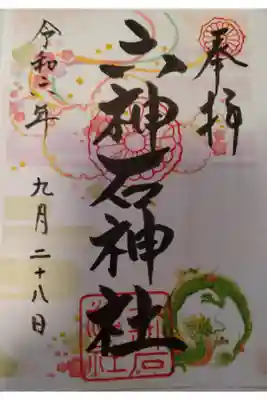 奉拝
六神石神社
令和二年
九月二十八日